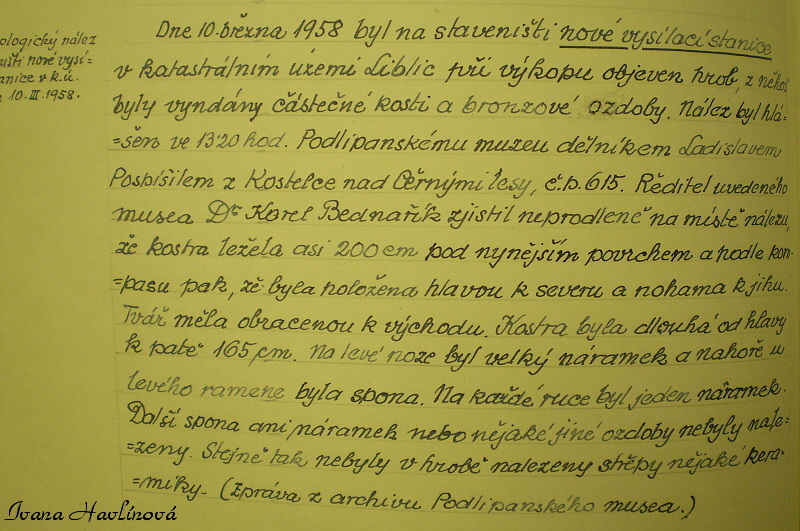 ologický nález
ništi nové vysí=
anice v k.ú.
10.III.1958.
Dne 10. března 1958 byl na staveništi nové vysílací stanice
v katastrálním území Liblic při výkopu objeven hrob, z něhož
byly vyndány částečné kosti a bronzové ozdoby. Nález byl hlá=
=šen ve 13'20 hod. Podlipanskému museu dělníkem Ladislavem
Pospíšilem z Kostelce nad Černými lesy, č.p. 615. Ředitel uvedeného
musea Dr Karel Bednařík zjistil neprodleně na místě nálezu,
že kostra ležela asi 200 cm pod nynějším povrchem a podle kom=
=pasu pak, že byla položena hlavou k severu a nohama k jihu.
Tvář měla obracenou k východu. Kostra byla dlouhá od hlavy
k patě 165 cm. Na levé noze byl velký náramek a nahoře u
levého ramene byla spona. Na každé ruce byl jeden náramek.
Další spona ani náramek nebo nějaké jiné ozdoby nebyly nale=
=zeny. Stejně tak nebyly v hrobě nalezeny střepy nějaké kera=
=miky. (Zpráva z archivu Podlipanského musea.)
Ivana Havlínová